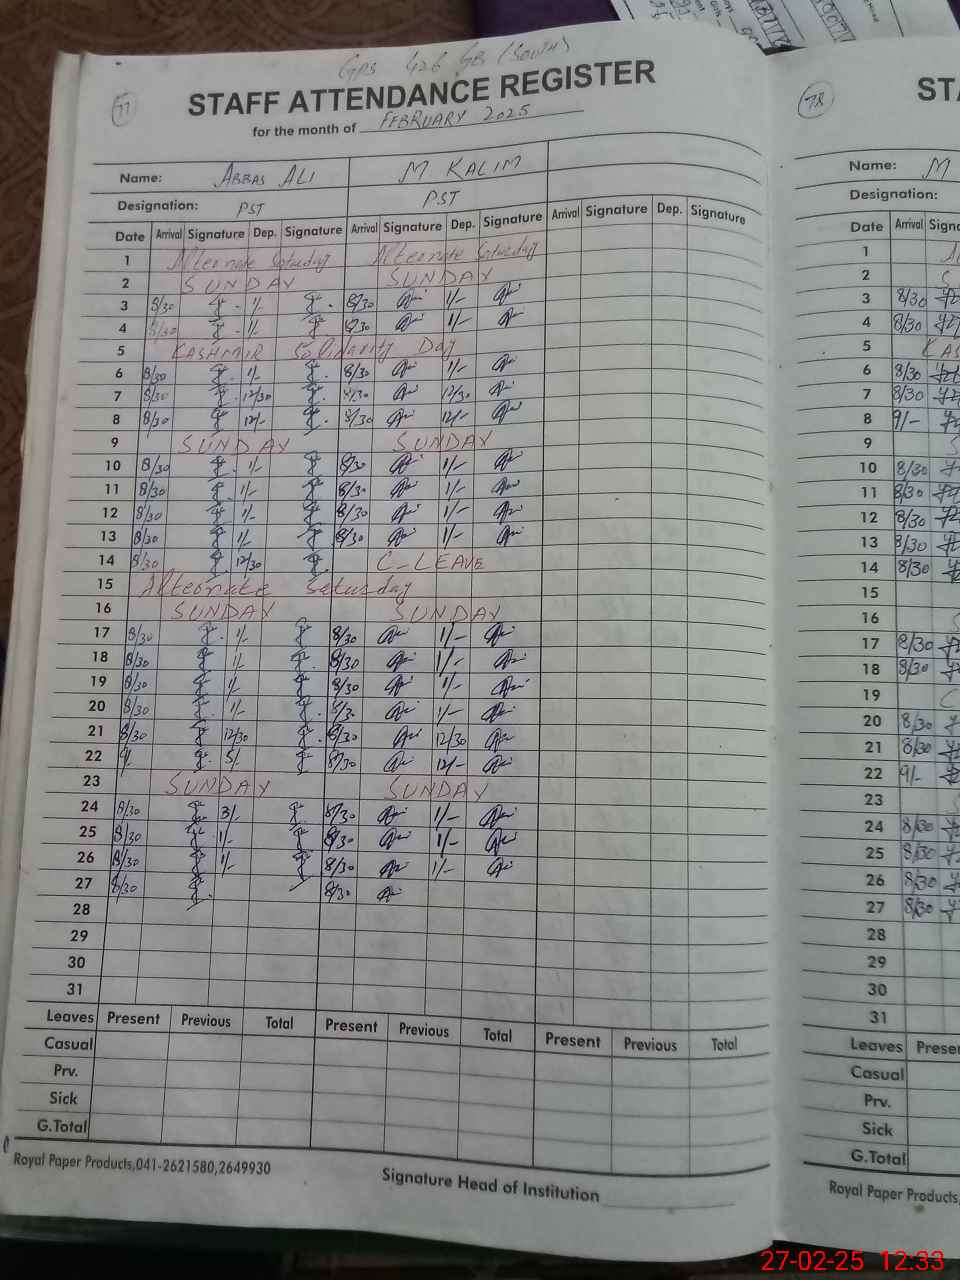 GPS 426 GB (South)
77
STAFF ATTENDANCE REGISTER
for the month of FEBRUARY 2025
Name: ABBAS ALI M KALIM
Designation: PST PST
Date Arrival Signature Dep. Signature Arrival Signature Dep. Signature Arrival Signature Dep. Signature
1 Alternate Saturday Alternate Saturday
2 SUNDAY SUNDAY
3 8/30 1/- 8/30 1/-
4 8/30 1/- 8/30 1/-
5 KASHMIR Solidarity Day
6 8/30 1/- 8/30 1/-
7 8/30 12/30 8/30 12/30
8 8/30 12/- 8/30 12/-
9 SUNDAY SUNDAY
10 8/30 1/- 8/30 1/-
11 8/30 1/- 8/30 1/-
12 8/30 1/- 8/30 1/-
13 8/30 1/- 8/30 1/-
14 8/30 12/30 C-LEAVE
15 Alternate Saturday
16 SUNDAY SUNDAY
17 8/30 1/- 8/30 1/-
18 8/30 1/- 8/30 1/-
19 8/30 1/- 8/30 1/-
20 8/30 1/- 8/30 1/-
21 8/30 12/30 8/30 12/30
22 9/- 5/- 8/30 12/-
23 SUNDAY SUNDAY
24 8/30 3/- 8/30 1/-
25 8/30 1/- 8/30 1/-
26 8/30 1/- 8/30 1/-
27 8/30 8/30
28
29
30
31
Leaves Present Previous Total Present Previous Total Present Previous Total
Casual
Prv.
Sick
G.Total
Royal Paper Products,041-2621580,2649930
Signature Head of Institution
78
STA
Name: M
Designation:
Date Arrival Sign
1
2 S
3 8/30
4 8/30
5 KAS
6 8/30
7 8/30
8 9/-
9 S
10 8/30
11 8/30
12 8/30
13 8/30
14 8/30
15
16
17 8/30
18 8/30
19 C
20 8/30
21 8/30
22 9/-
23
24 8/30
25 8/30
26 8/30
27 8/30
28
29
30
31
Leaves Prese
Casual
Prv.
Sick
G.Total
Royal Paper Products,
27-02-25 12:33